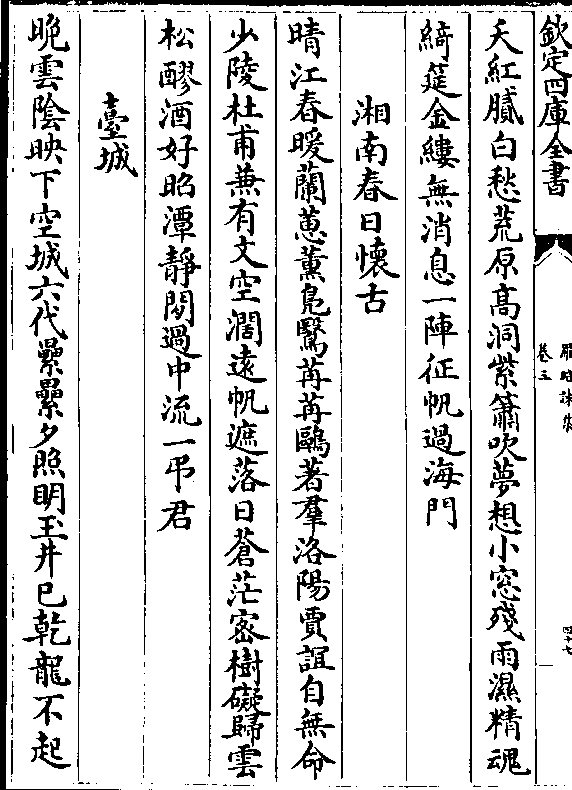 欽定四庫全書
卷三
四十七
夭紅膩白愁荒原高洞紫簫吹夢想小窓殘雨濕精魂
綺筵金縷無消息一陣征帆過海門
湘南春日懷古
晴江春暖蘭蕙薰鳧鷖苒苒鷗著羣洛陽賈誼自無命
少陵杜甫兼有文空濶遠帆遮落日蒼茫宻樹礙歸雲
松醪酒好昭潭靜閒過中流一弔君
臺城
晩雲陰映下空城六代纍纍夕照明玉井已乾龍不起